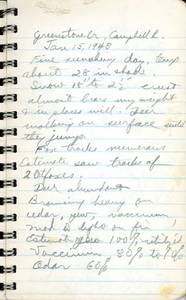 Greenstone Cr, Campbell R.
Jan 15, 1948
Fine sunshiny day. Temp
about 28 in shade.
Snow 18" to 2½' crust
almost bears my weight
in places well. Deer
making on surface until
they jump.
Fox tracks numerous
Estimate saw tracks of
20 foxes.
Deer abundant
Browsing heavy on
cedar, yew, vaccinium,
mod to light on fir
Estimate 100% utiliz'd
Vaccinium 80% to
Cedar 60%